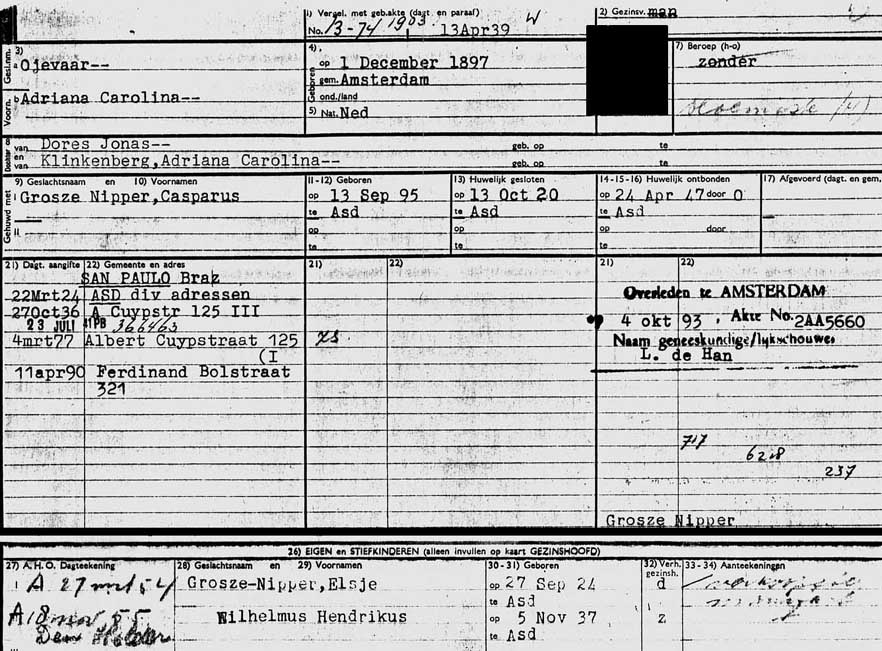 1) Vergel. met geb.akte (dagt. en paraaf)
No. 13-74 1903 13Apr39 W
2) Gezinsv. man
3)
Gesl.nm.
a Ojevaar--
Voorn.
b Adriana Carolina--
4)
Geboren
op 1 December 1897
gem. Amsterdam
ond./land
5) Nat. Ned
7) Beroep (h-o)
zonder
van Dores Jonas-- geb. op te
en
van Klinkenberg,Adriana Carolina-- geb. op te
Gehuwd met
9) Geslachtsnaam en 10) Voornamen
I Grosze Nipper,Casparus
II
11-12) Geboren
op 13 Sep 95
te Asd
op
te
13) Huwelijk gesloten
op 13 Oct 20
te Asd
op
te
14-15-16) Huwelijk ontbonden
op 24 Apr 47 door O
te Asd
op door
te
17) Afgevoerd (dagt. en gem.
21) Dagt. aangifte 22) Gemeente en adres
SAN PAULO Braz
22Mrt24 ASD div adressen
27Oct36 A Cuypstr 125 III
23 JULI 41PB 366463
4mrt77 Albert Cuypstraat 125
(I
11apr90 Ferdinand Bolstraat
321
21) 22)
21) 22)
Overleden te AMSTERDAM
4 okt 93 , Akte No. 2AA5660
Naam geneeskundige/lijkschouwer
L. de Han
717
628
237
Grosze Nipper
26) EIGEN en STIEFKINDEREN (alleen invullen op kaart GEZINSHOOFD)
27) A.H.O. Dagteekening
28) Geslachtsnaam en 29) Voornamen
30-31) Geboren
32) Verh. gezinsh.
33-34) Aanteekeningen
A 27 mrt 54 Grosze-Nipper,Elsje op 27 Sep 24 d
te Asd
A 18 nov 55 Wilhelmus Hendrikus op 5 Nov 37 z
Den Helder te Asd